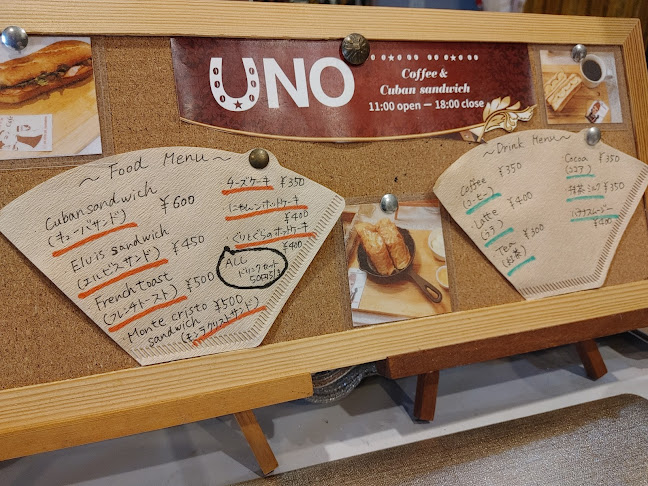 UNO
Coffee &
Cuban sandwich
11:00 open ー 18:00 close
～ Food Menu ～
Cuban sandwich ¥600
(キューバサンド)
Elvis sandwich ¥450
(エルビスサンド)
French toast ¥500
(フレンチトースト)
Monte cristo ¥500
sandwich
(モンテクリストサンド)
チーズケーキ ¥350
にんじんホットケーキ
¥400
ぐりとぐらのホットケーキ
¥400
ALL
ドリンクセット
～ Drink Menu ～
Coffee ¥350
(コーヒー)
Latte ¥400
(ラテ)
Tea ¥300
(紅茶)
Cocoa ¥350
(ココア)
抹茶ミルク ¥350
バナナスムージー